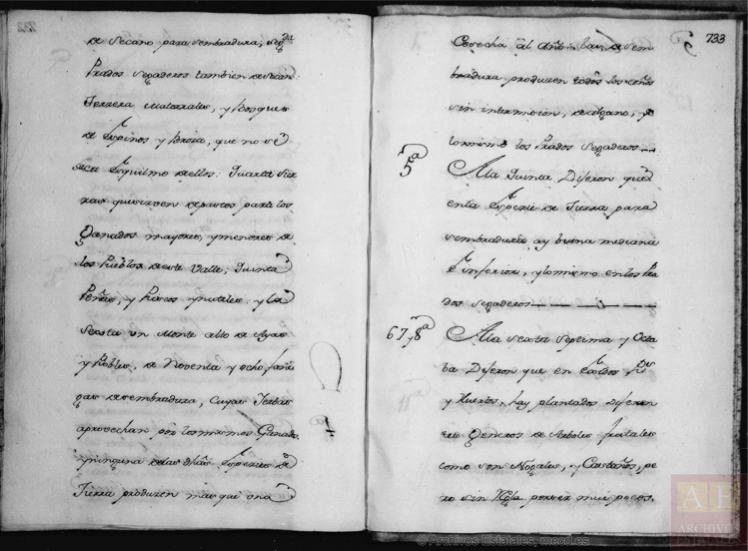 de Secano para sembradura; segda
Prados Segaderos tambien de Secan
Terrera Matorrales, y Bosques
de Espinos y Broza, que no se
saca Esquilmo de ellos: Quarta Sier
ras que sirven de pastos para los
Ganados mayores, y menores de
los Pueblos de este Valle; Quinta
Peñas, y Riscos ynutiles: y la
Sexta un Monte alto de Ayas
y Robles, de Noventa y ocho fane
gas de sembradura, Cuyas Yerbas
aprovechan por los mismos Ganados
y ninguna de las dhas Especies de
Tierra producen mas que una
733
Cosecha al Año: las de sem
bradura producen todos los años
sin intermision, de descanso, y
lo mismo los Prados Segaderos
5ª
A la Quinta Dijeron que
en la Especie de Tierra para
sembradura ay buena mediana
è inferior, y lo mismo en los Pra
dos Segaderos
6 7 y 8ª
A la sexta septima y Octa
ba Dijeron que en
y Huertos, hay plantados Diferen
tes Generos de Arboles frutales
como son Nogales, y Castaños, pe
ro sin Regla por ser mui pocos.
AE
ARCHIVOS ESTATALES
© Archivos Estatales, mecd.es